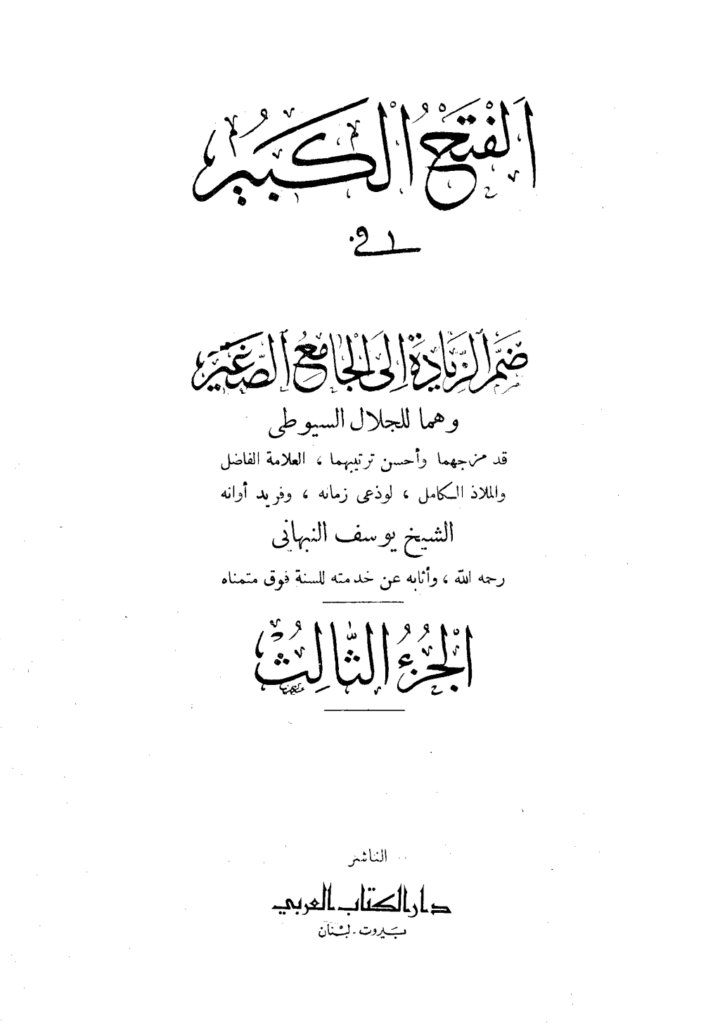 الفتح الكبير
في
ضم الزيادة إلى الجامع الصغير
وهما للجلال السيوطى
قد مزجهما وأحسن ترتيبهما ، العلامة الفاضل
والملاذ الكامل ، لوذعى زمانه ، وفريد أوانه
الشيخ يوسف النبهانى
رحمه الله ، وأثابه عن خدمته للسنة فوق متمناه
الجزء الثالث
الناشر
دار الكتاب العربي
بيروت - لبنان